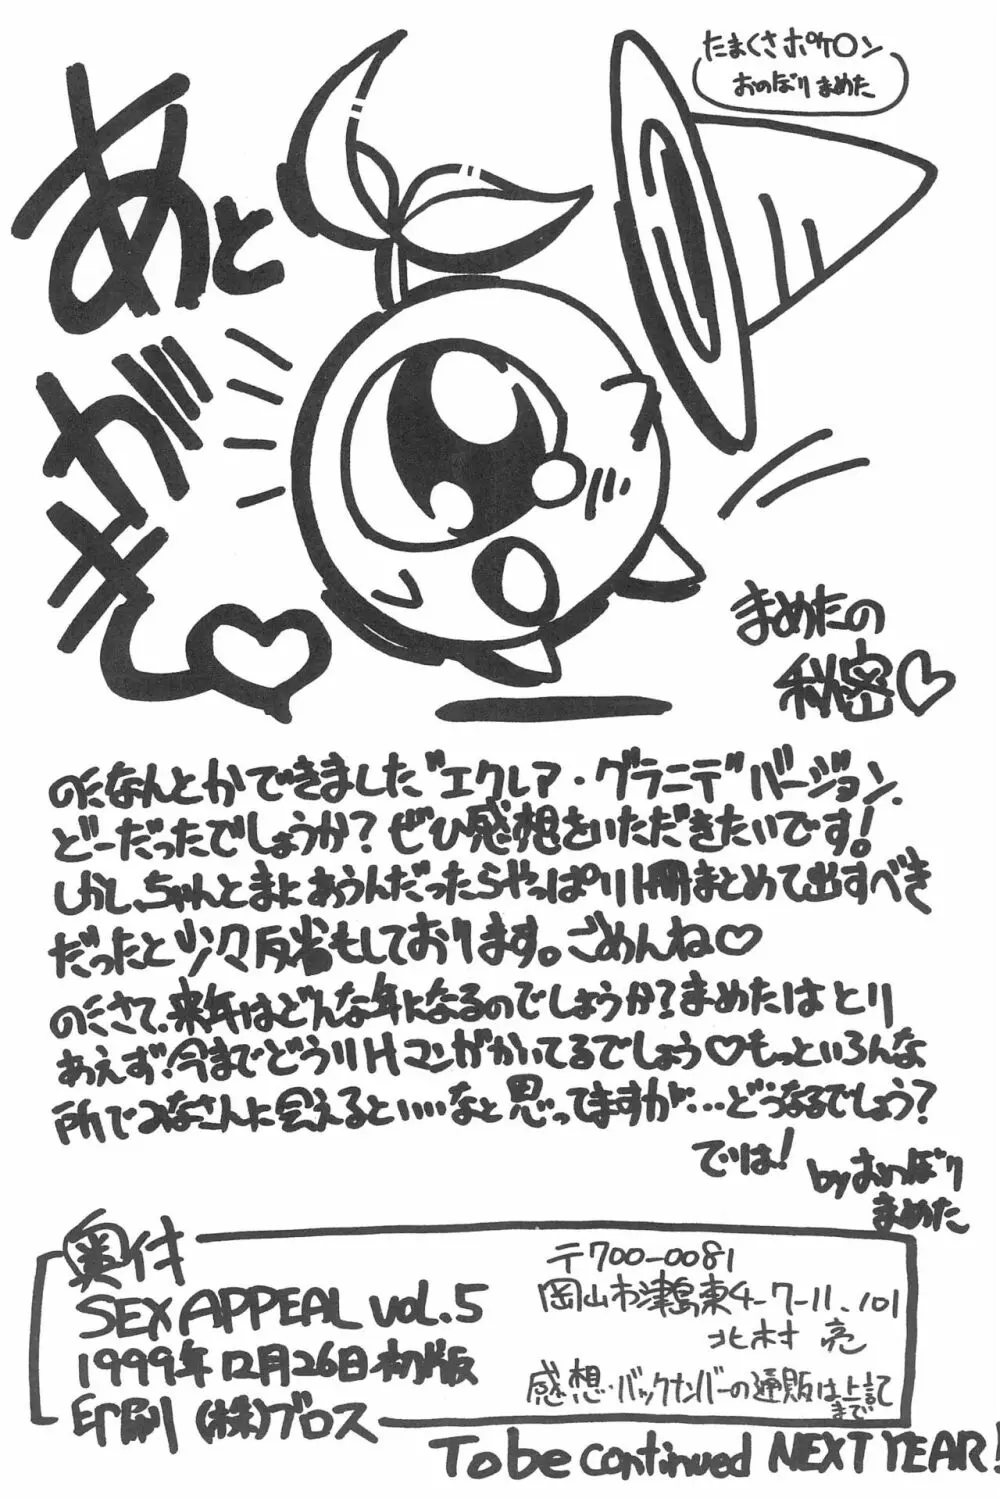 たまくさポケ〇ン
おのぼりまめた
あとがき♡
まめたの
秘密♡
のになんとかできました"エクレア・グラニテ"バージョン。
どーだったでしょうか?ぜひ感想をいただきたいです!
しかし、ちゃんとまにあうんだったらやっぱり1冊まとめて出すべき
だったと少々反省もしております。ごめんね♡
のにさて、来年はどんな年になるのでしょうか?まめたはとり
あえず今までどうりHマンガかいてるでしょう♡もっといろんな
所でみなさんに会えるといいなと思ってますが…どうなるでしょう?
では!
byおのぼり
まめた
奥付
SEX APPEAL vol.5
1999年12月26日初版
印刷(株)ブロス
〒700-0081
岡山市津島東4-7-11、101
北村 亮
感想・バックナンバーの通販は上記
まで
To be continued NEXT YEAR!